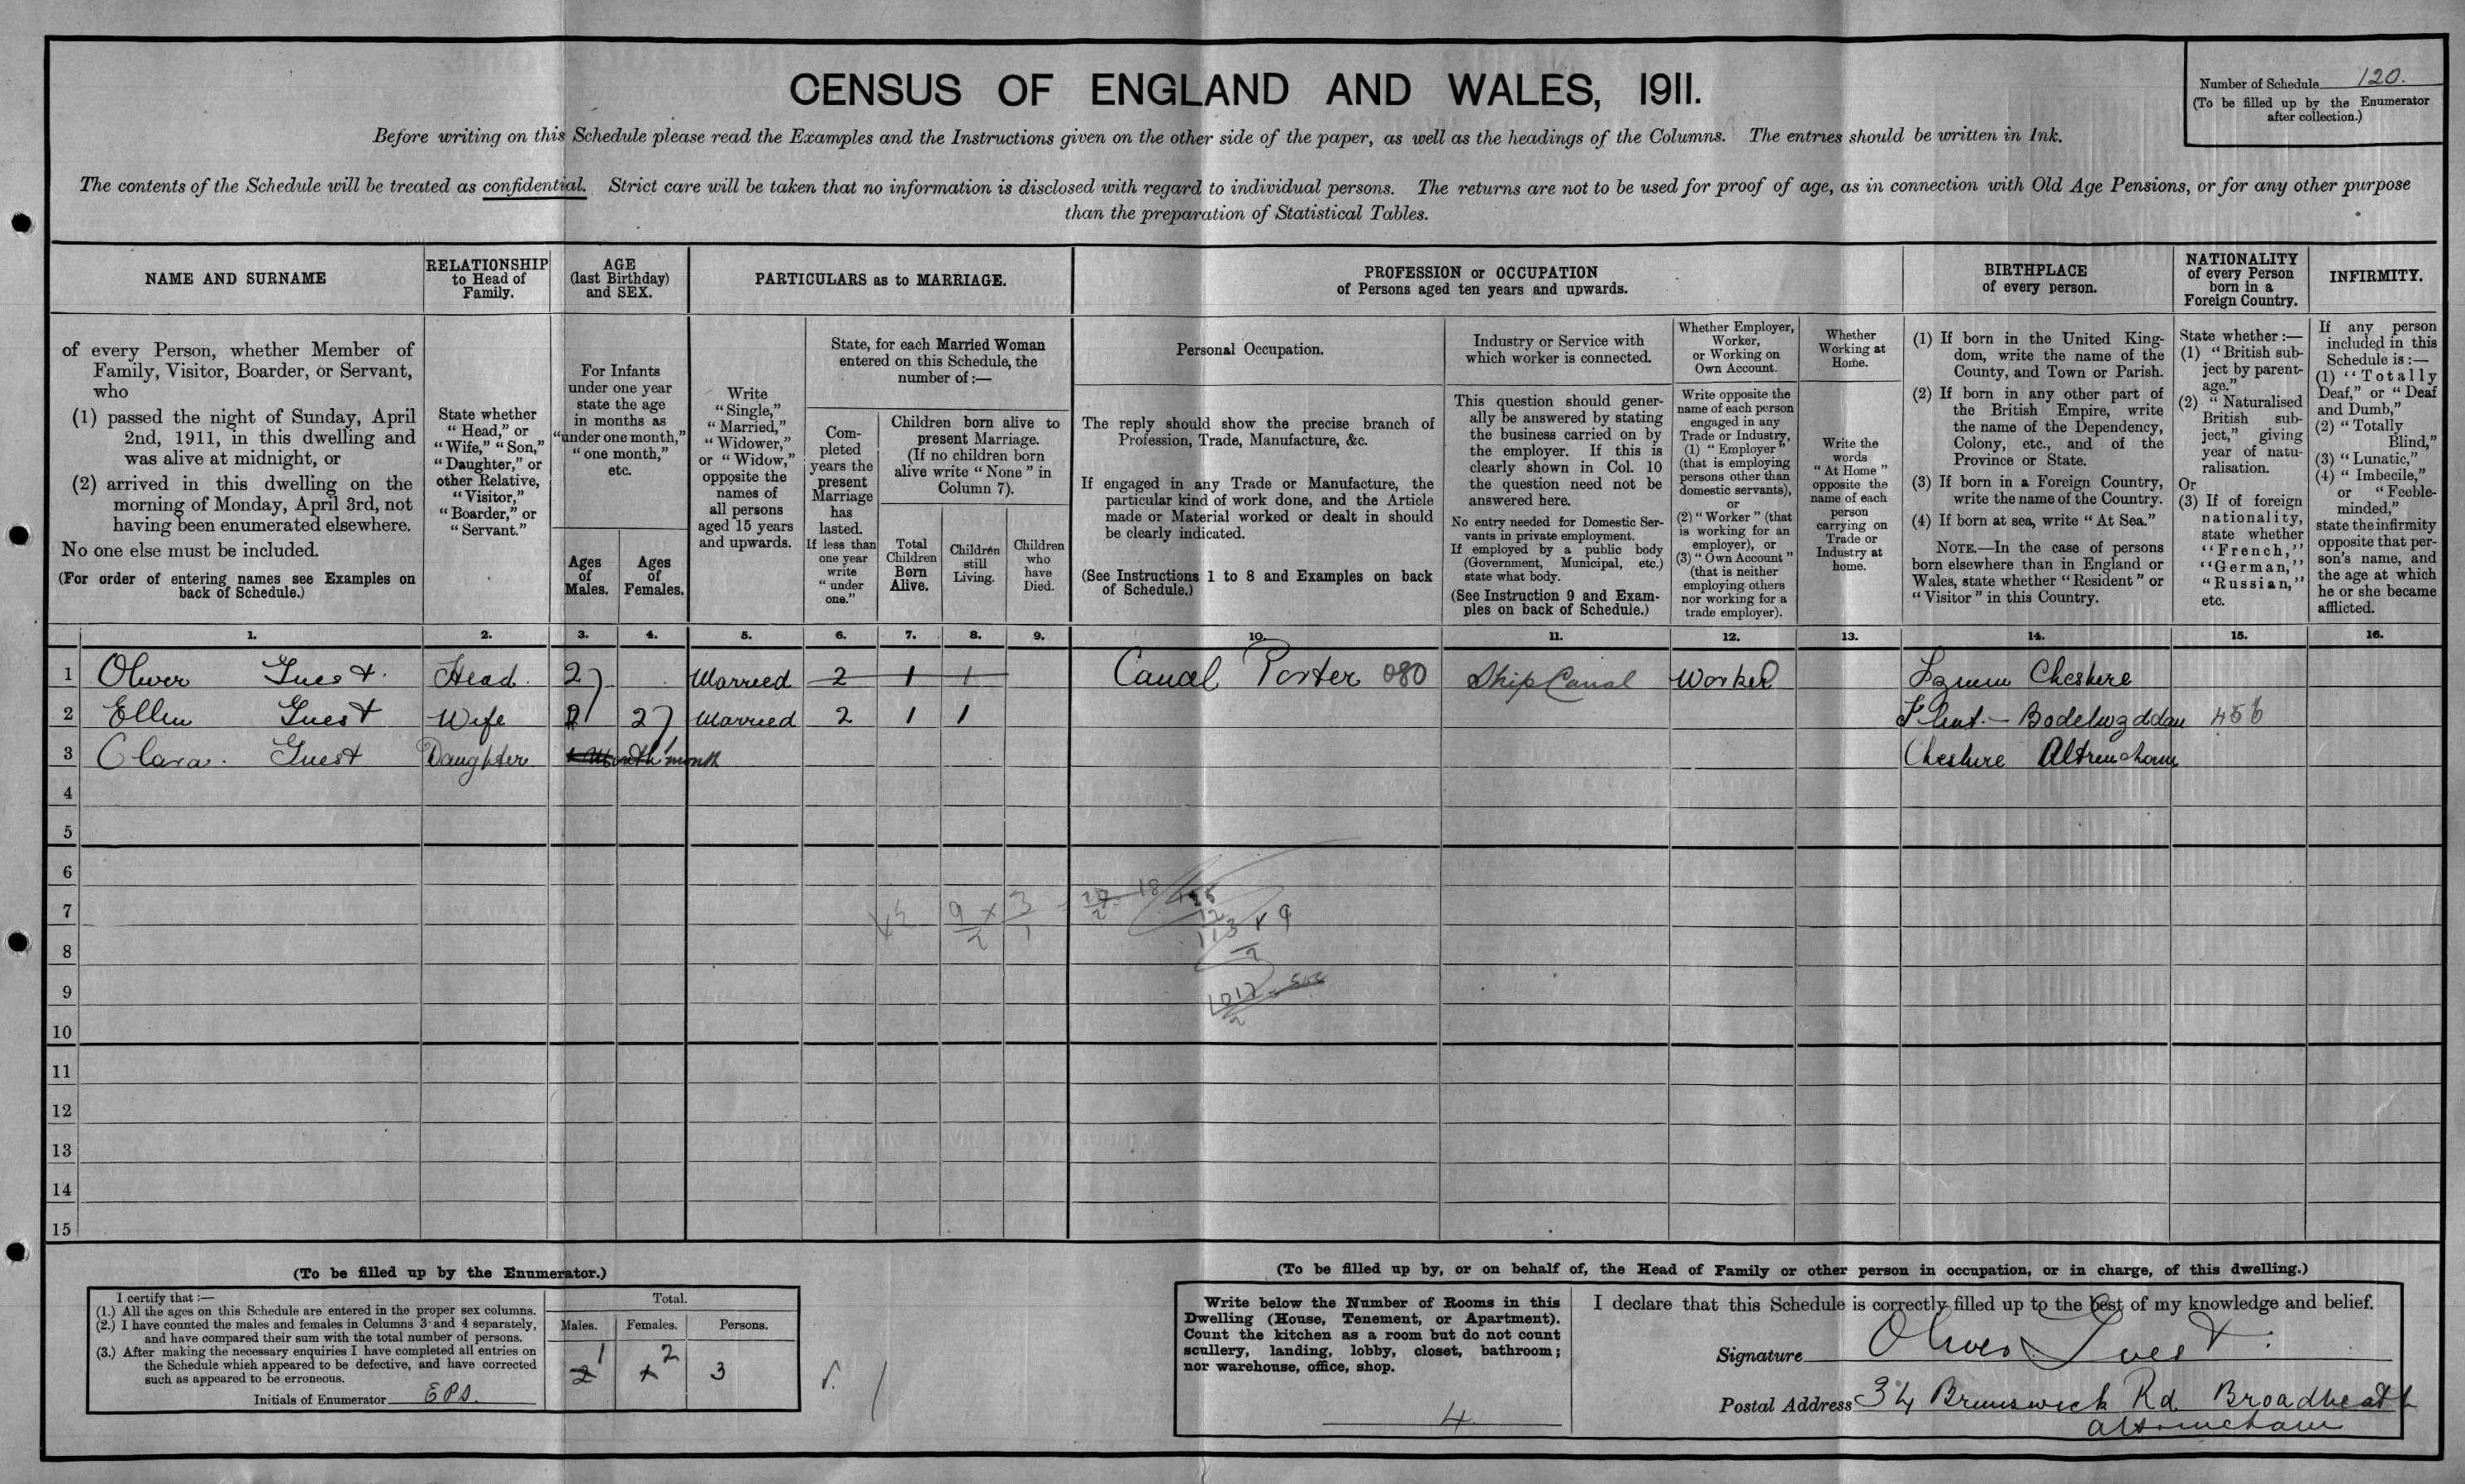 CENSUS OF ENGLAND AND WALES, 1911.
Number of Schedule 120.
(To be filled up by the Enumerator
after collection.)
Before writing on this Schedule please read the Examples and the Instructions given on the other side of the paper, as well as the headings of the Columns. The entries should be written in Ink.
The contents of the Schedule will be treated as confidential. Strict care will be taken that no information is disclosed with regard to individual persons. The returns are not to be used for proof of age, as in connection with Old Age Pensions, or for any other purpose
than the preparation of Statistical Tables.
NAME AND SURNAME
of every Person, whether Member of
Family, Visitor, Boarder, or Servant,
who
(1) passed the night of Sunday, April
2nd, 1911, in this dwelling and
was alive at midnight, or
(2) arrived in this dwelling on the
morning of Monday, April 3rd, not
having been enumerated elsewhere.
No one else must be included.
(For order of entering names see Examples on
back of Schedule.)
RELATIONSHIP
to Head of
Family.
State whether
"Head," or
"Wife," "Son,"
"Daughter," or
other Relative,
"Visitor,"
"Boarder," or
"Servant."
AGE
(last Birthday)
and SEX.
For Infants
under one year
state the age
in months as
"under one month,"
"one month,"
etc.
Ages
of
Males.
Ages
of
Females.
PARTICULARS as to MARRIAGE.
Write
"Single,"
"Married,"
"Widower,"
or "Widow,"
opposite the
names of
all persons
aged 15 years
and upwards.
State, for each Married Woman
entered on this Schedule, the
number of :—
Com-
pleted
years the
present
Marriage
has
lasted.
If less than
one year
write
"under
one."
Children born alive to
present Marriage.
(If no children born
alive write "None" in
Column 7).
Total
Children
Born
Alive.
Children
still
Living.
Children
who
have
Died.
PROFESSION or OCCUPATION
of Persons aged ten years and upwards.
Personal Occupation.
The reply should show the precise branch of
Profession, Trade, Manufacture, &c.
If engaged in any Trade or Manufacture, the
particular kind of work done, and the Article
made or Material worked or dealt in should
be clearly indicated.
(See Instructions 1 to 8 and Examples on back
of Schedule.)
Industry or Service with
which worker is connected.
This question should gener-
ally be answered by stating
the business carried on by
the employer. If this is
clearly shown in Col. 10
the question need not be
answered here.
No entry needed for Domestic Ser-
vants in private employment.
If employed by a public body
(Government, Municipal, etc.)
state what body.
(See Instruction 9 and Exam-
ples on back of Schedule.)
Whether Employer,
Worker,
or Working on
Own Account.
Write opposite the
name of each person
engaged in any
Trade or Industry,
(1) "Employer"
(that is employing
persons other than
domestic servants),
or
(2) "Worker" (that
is working for an
employer), or
(3) "Own Account"
(that is neither
employing others
nor working for a
trade employer).
Whether
Working at
Home.
Write the
words
"At Home"
opposite the
name of each
person
carrying on
Trade or
Industry at
home.
BIRTHPLACE
of every person.
(1) If born in the United King-
dom, write the name of the
County, and Town or Parish.
(2) If born in any other part of
the British Empire, write
the name of the Dependency,
Colony, etc., and of the
Province or State.
(3) If born in a Foreign Country,
write the name of the Country.
(4) If born at sea, write "At Sea."
NOTE.—In the case of persons
born elsewhere than in England or
Wales, state whether "Resident" or
"Visitor" in this Country.
NATIONALITY
of every Person
born in a
Foreign Country.
State whether :—
(1) "British sub-
ject by parent-
age."
(2) "Naturalised
British sub-
ject," giving
year of natu-
ralisation.
Or
(3) If of foreign
nationality,
state whether
"French,"
"German,"
"Russian,"
etc.
INFIRMITY.
If any person
included in this
Schedule is :—
(1) "Totally
Deaf," or "Deaf
and Dumb,"
(2) "Totally
Blind,"
(3) "Lunatic,"
(4) "Imbecile,"
or "Feeble-
minded,"
state the infirmity
opposite that per-
son's name, and
the age at which
he or she became
afflicted.
1. 2. 3. 4. 5. 6. 7. 8. 9. 10. 11. 12. 13. 14. 15. 16.
1 Oliver Guest. Head. 27 Married 2 1 1 Canal Porter 080 Ship Canal Worker Lymm Cheshire
2 Ellen Guest Wife 27 Married 2 1 1 Flint.— Bodelwyddan 456
3 Clara. Guest Daughter 1 month Cheshire Altrincham
4
5
6
7
8
9
10
11
12
13
14
15
(To be filled up by the Enumerator.)
I certify that :—
(1.) All the ages on this Schedule are entered in the proper sex columns.
(2.) I have counted the males and females in Columns 3 and 4 separately,
and have compared their sum with the total number of persons.
(3.) After making the necessary enquiries I have completed all entries on
the Schedule which appeared to be defective, and have corrected
such as appeared to be erroneous.
Initials of Enumerator EPS.
Total.
Males. Females. Persons.
1 2 3
(To be filled up by, or on behalf of, the Head of Family or other person in occupation, or in charge, of this dwelling.)
Write below the Number of Rooms in this
Dwelling (House, Tenement, or Apartment).
Count the kitchen as a room but do not count
scullery, landing, lobby, closet, bathroom;
nor warehouse, office, shop.
4
I declare that this Schedule is correctly filled up to the best of my knowledge and belief.
Signature Oliver Guest.
Postal Address 34 Brunswick Rd Broadheath
Altrincham